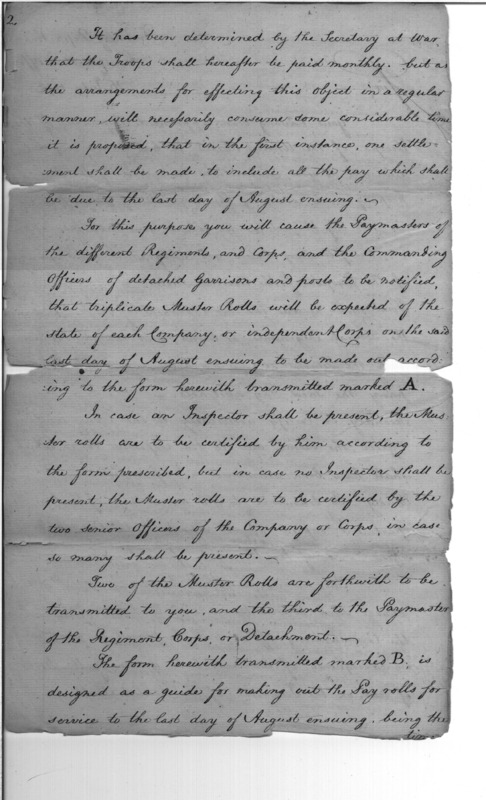 2
It has been determined by the Secretary at War,
that the Troops shall hereafter be paid monthly. but as
the arrangements for effecting this object in a regular
manner, will necessarily consume some considerable time
it is proposed, that in the first instance, one settle-
ment shall be made, to include all the pay which shall
be due to the last day of August ensuing.
For this purpose you will cause the Paymasters of
the different Regiments, and Corps, and the Commanding
Officers of detached Garrisons and posts to be notified,
that triplicate Muster Rolls will be expected of the
state of each Company, or independent Corps on the said
last day of August ensuing to be made out accord-
:ing to the form herewith transmitted marked A.
In case an Inspector shall be present, the Mus-
:ter rolls are to be certified by him according to
the form prescribed, but in case no Inspector shall be
present, the Muster rolls are to be certified by the
two senior Officers of the Company or Corps, in case
so many shall be present.
Two of the Muster Rolls are forthwith to be
transmitted to you, and the third to the Paymaster
of the Regiment, Corps, or Detachment.
The form herewith transmitted marked B. is
designed as a guide for making out the Pay rolls for
service to the last day of August ensuing. being the
time